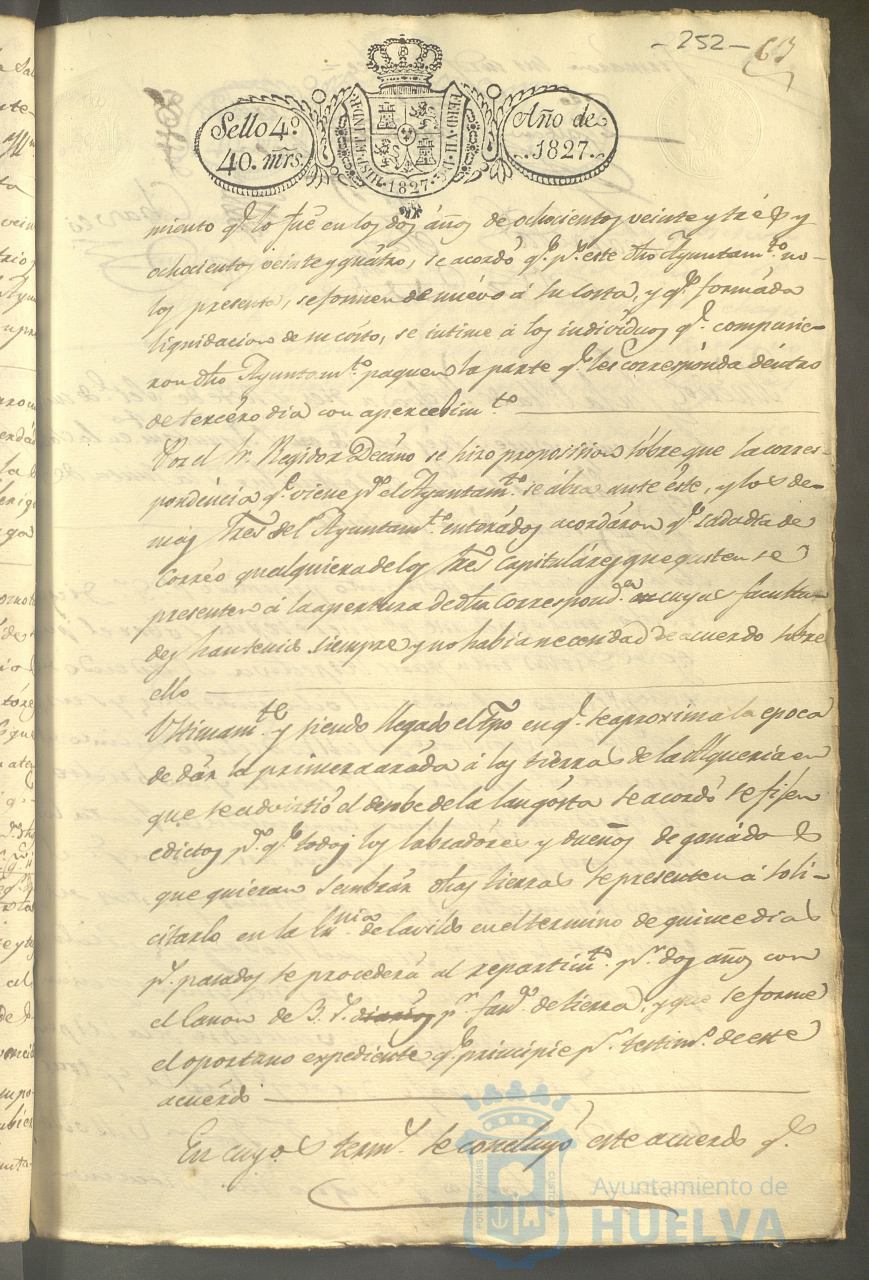 - 252 -
Sello 4º
40. mrs.
HISP. ET IND. R.
FERD. VII. D. G.
. 1827 .
Año de
. 1827 .
miento q.e lo fué en los dos años de ochocientos veinte y tres y
ochocientos veinte y quátro, se acordó q.e p.r este dho Ayuntam.to no
los presenta, se formen de nuévo á su costa, y q.e formáda
liquidacion de su cósto, se intime á los individuos q.e compusie-
ron dho Ayuntam.to paguen la parte q.e les correspónda déntro
de tercéro dia con apercebim.to
Por el Sr. Regidor Decáno se hizo proposicion sóbre que la corres-
pondéncia q.e viene p.a el Ayuntam.to se ábra ante éste, y los de-
mas Sres del Ayuntam.to enterádos acordáron q.e cada dia de
Corréo qualquiera de los Sres Capituláres que gusten se
presenten á la apertura de dha correspond.a cuyas faculta-
des han tenido siempre y no habia necesidad de acuerdo sobre
ello
Ultimam.te y siendo llegado el tpo en q.e se aproxima la epoca
de dár la primera aráda á las tierras de la Alqueria en
que se advirtió el desobe de la langósta se acordó se fijen
edictos p.a q.e todos los labradóres y dueños de ganádo
que quieran sembrár dhas tierras se presenten á soli-
citarlo en la Srnia de Cavildo en el termino de quince dias
p.s pasados se procederá al repartim.to p.r dos años con
el Canon de 3. r. diarios p.r fan.a de tierra, y que se forme
el oportuno expediente q.e principie p.r testim.o de este
acuérdo
En cuyos term.s se concluyó este acuerdo q.e
PORTUS MARIS
CUSTODIA
Ayuntamiento de
HUELVA